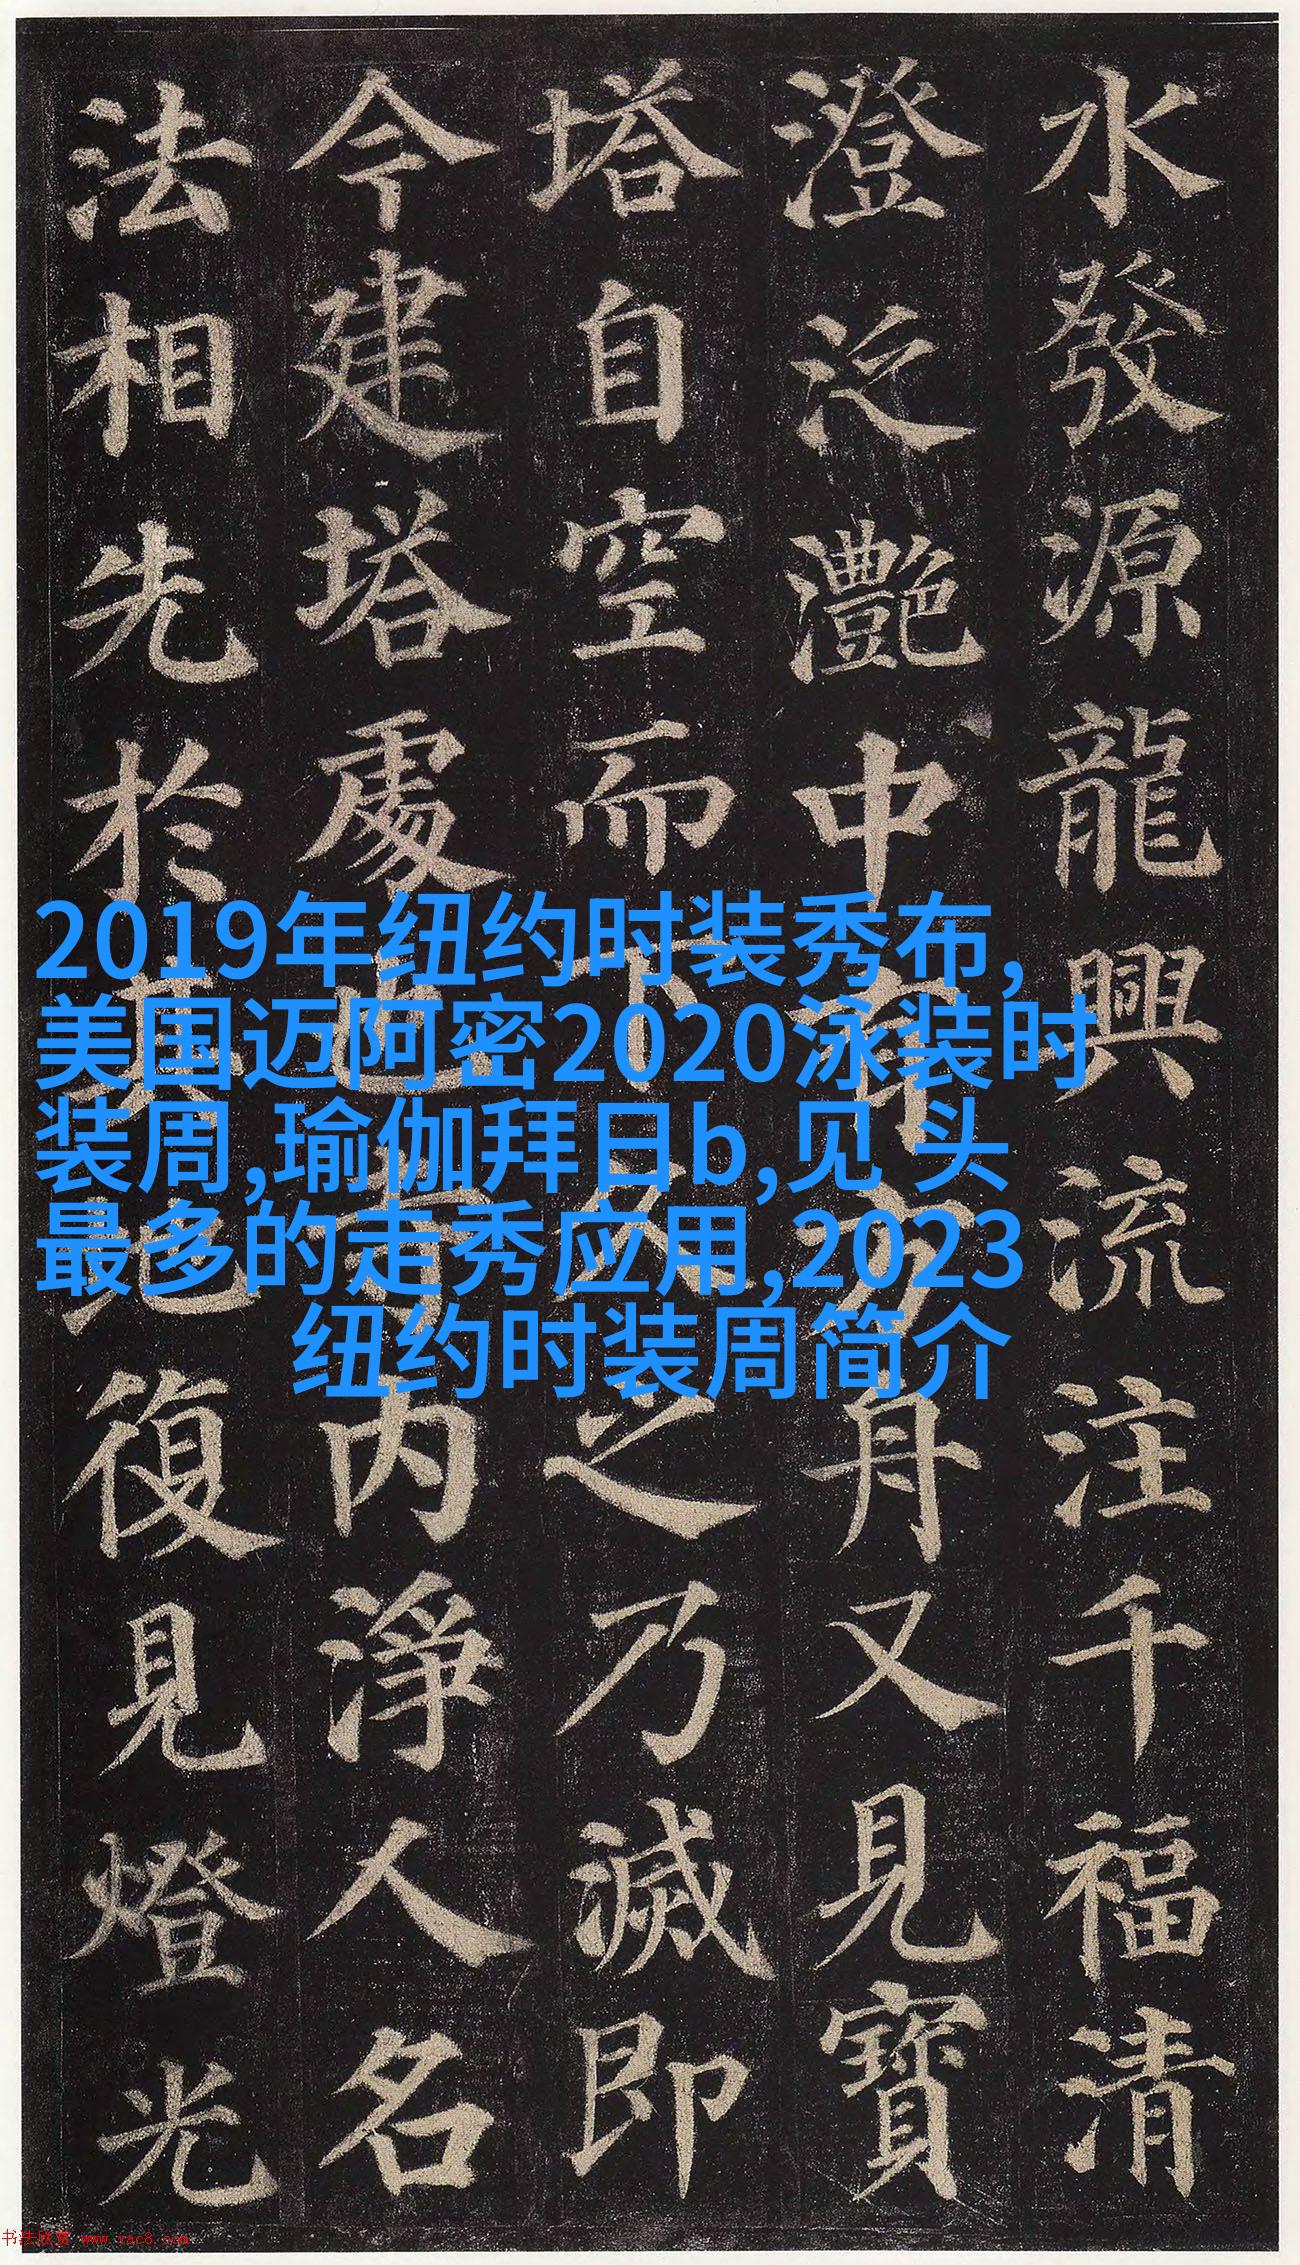 水發源龍興流注千福清
澄泛灧中有方舟又見寶
塔自空而下久之乃滅即
今建塔處也寺内淨人名
法相先於其地復見燈光
2019年纽约时装秀布,
美国迈阿密2020泳装时
装周,瑜伽拜日b,见 头
最多的走秀应用,2023
纽约时装周简介
书法欣赏 www.yac8.com